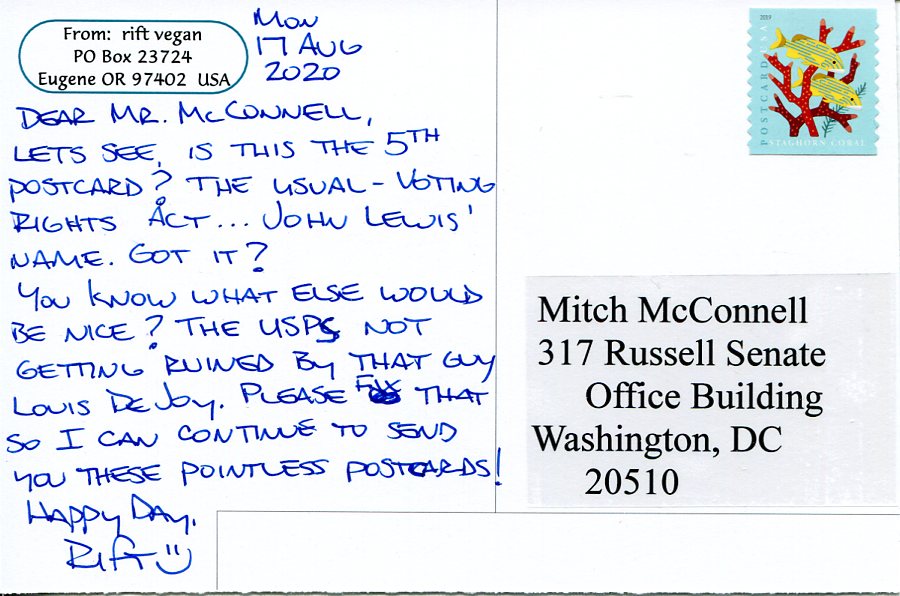 From: rift vegan
PO Box 23724
Eugene OR 97402 USA
MON
17 AUG
2020
DEAR MR. MCCONNELL,
LETS SEE, IS THIS THE 5TH
POSTCARD? THE USUAL - VOTING
RIGHTS ACT... JOHN LEWIS'
NAME. GOT IT?
YOU KNOW WHAT ELSE WOULD
BE NICE? THE USPS NOT
GETTING RUINED BY THAT GUY
LOUIS DEJOY. PLEASE FIX THAT
SO I CAN CONTINUE TO SEND
YOU THESE POINTLESS POSTCARDS!
HAPPY DAY,
Rift
2019
POSTCARD USA
STAGHORN CORAL
Mitch McConnell
317 Russell Senate
Office Building
Washington, DC
20510